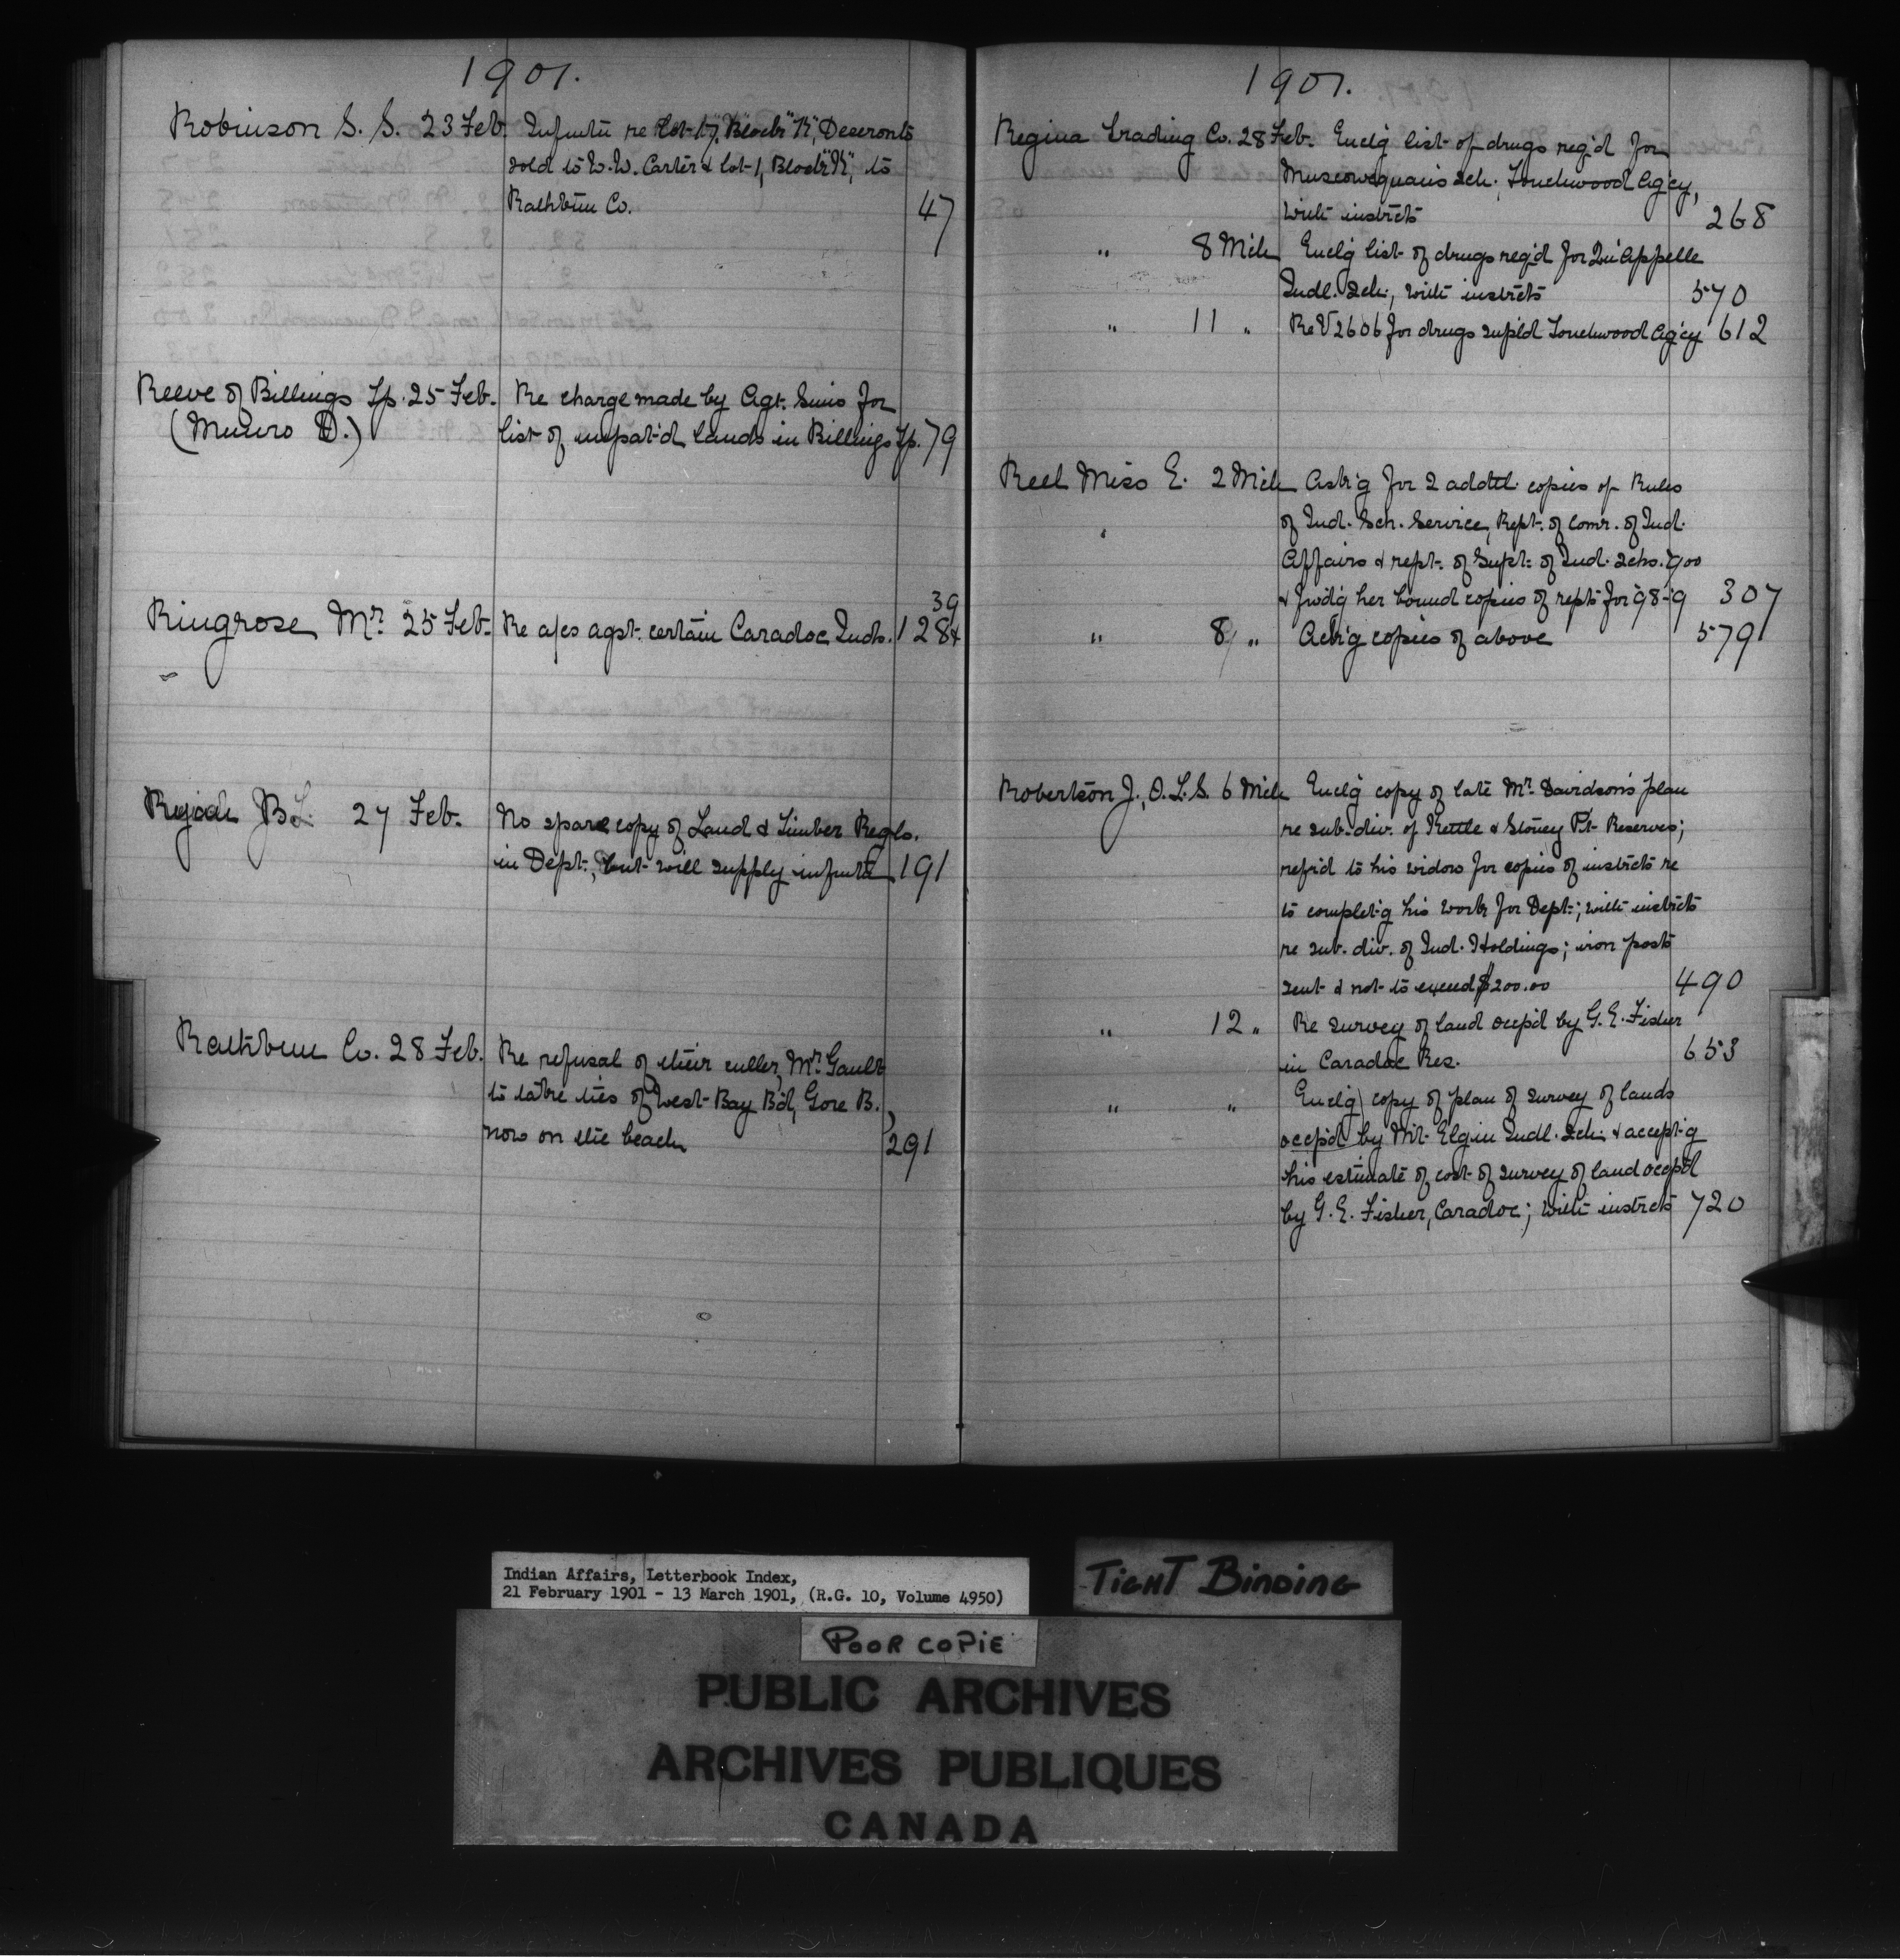 1901.
Robinson S. S. 23 Feb. Infmtn re Lot 17, Block "K", Deseronto
sold to W. W. Carter & Lot 1, Block "K", to
Rathbun Co. 47
Reeve of Billings Tp. 25 Feb. Re charge made by Agt. Sims for
(Munro D.) list of unpat'd lands in Billings Tp. 79
39
Ringrose Mr. 25 Feb. Re a/cs agst. certain Caradoc Inds. 128
27 Feb. No spare copy of Land & Timber Regls.
in Dept., but will supply infmtn 191
Rathbun Co. 28 Feb. Re refusal of their culler, Mr. Gault
to take ties of West Bay B'd, Gore B.,
now on the beach 291
1901.
Regina Trading Co. 28 Feb. Encl'g list of drugs req'd for
Muscowequan's sch. Touchwood Ag'cy,
with instrcts 268
" 8 Mch Encl'g list of drugs req'd for Qu'Appelle
Indl. Sch., with instrcts 570
" 11 " Re V 2606 for drugs supl'd Touchwood Ag'cy 612
Reel Miss E. 2 Mch Ask'g for 2 addtl. copies of Rules
" of Ind. Sch. Service, Rept. of Comr. of Ind.
Affairs & rept. of Supt. of Ind. Schs. 1900
& fwd'g her bound copies of repts for 98-9 307
" 8 " Ack'g copies of above 579
Robertson J., O.L.S. 6 Mch Encl'g copy of late Mr. Davidson's plan
re sub-div. of Kettle & Stoney Pt. Reserves;
ref'r'd to his widow for copies of instrcts re
to complet'g his work for Dept.; with instrcts
re sub. div. of Ind. Holdings; iron posts
sent & not to exceed $200.00 490
" 12 " Re survey of land occp'd by G. E. Fisher
in Caradoc Res. 653
" " Encl'g copy of plan of survey of lands
occp'd by Mt. Elgin Indl. Sch. & accept'g
his estimate of cost of survey of land occp'd
by G. E. Fisher, Caradoc; with instrcts 720
Indian Affairs, Letterbook Index,
21 February 1901 - 13 March 1901, (R.G. 10, Volume 4950)
TIGHT BINDING
POOR COPIE
PUBLIC ARCHIVES
ARCHIVES PUBLIQUES
CANADA